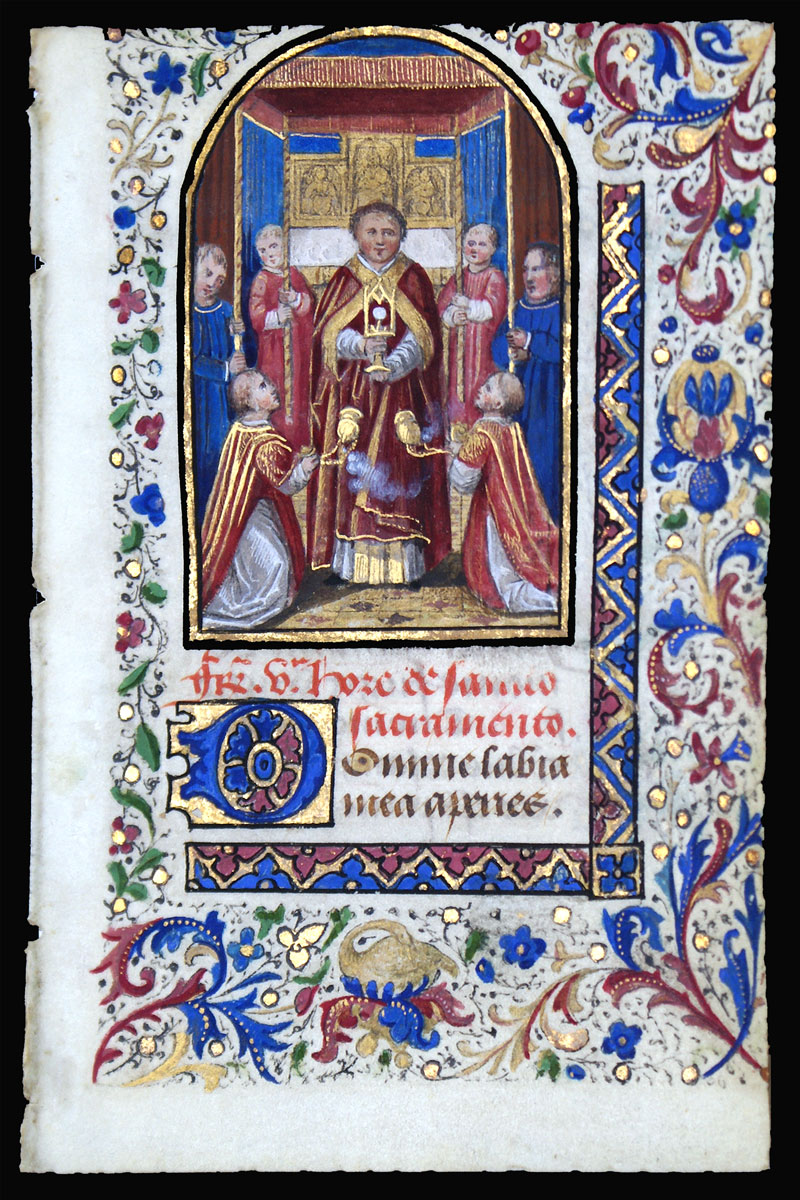 hore de sancto
sacramento.
Domine labia
mea aperies.